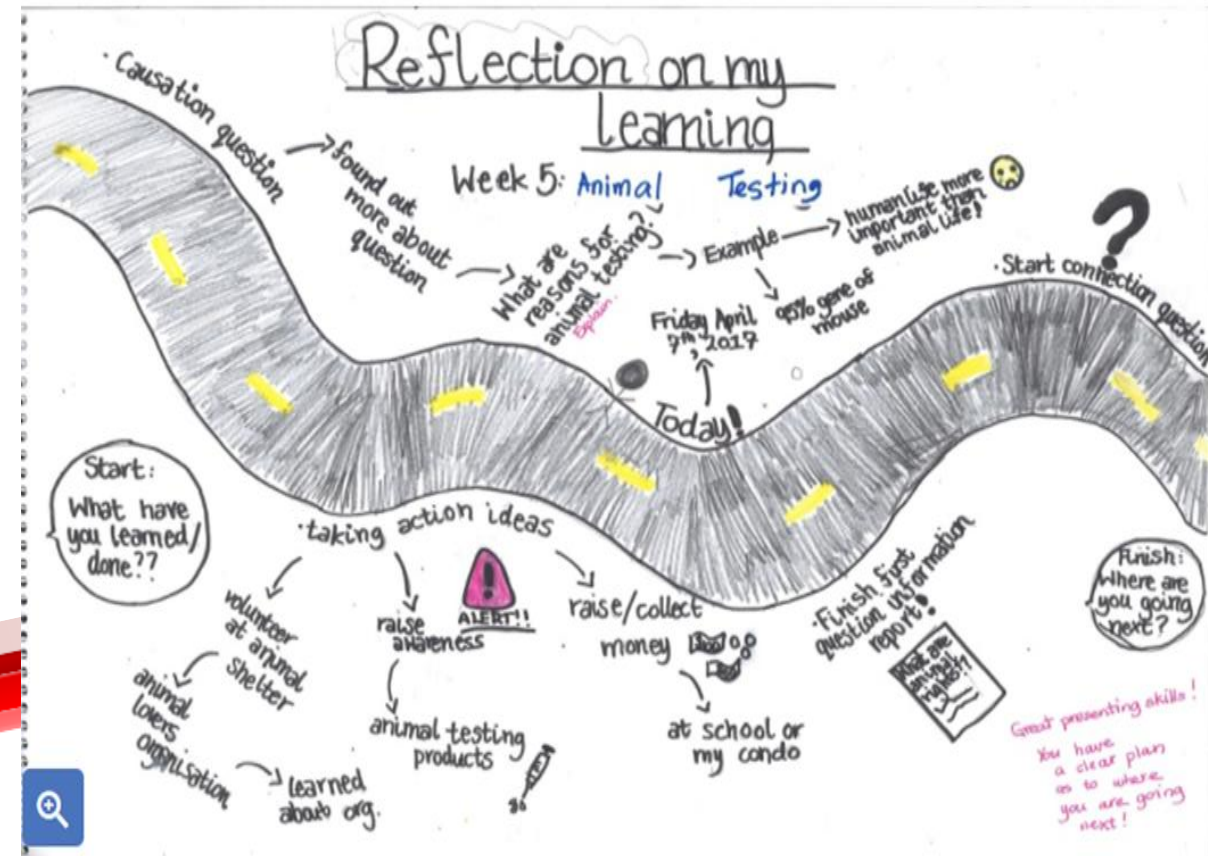 Reflection on my
learning
Week 5: Animal Testing
· Causation question
found out
more about
question
What are
reasons for
animal testing?
Explain.
Example
human life more
important than
animal life!
95% gene of
mouse
Friday April
7th, 2017
Today!
?
· Start connection question
Start:
What have
you learned/
done??
· taking action ideas
volunteer
at animal
shelter
animal
lovers
orgnisation
learned
about org.
raise
awareness
!
ALERT!!
animal testing
products
raise/collect
money
at school or
my condo
· Finish first
question information
report!
What are
animal
rights?!
Finish:
Where are
you going
next?
Great presenting skills!
You have
a clear plan
as to where
you are going
next!